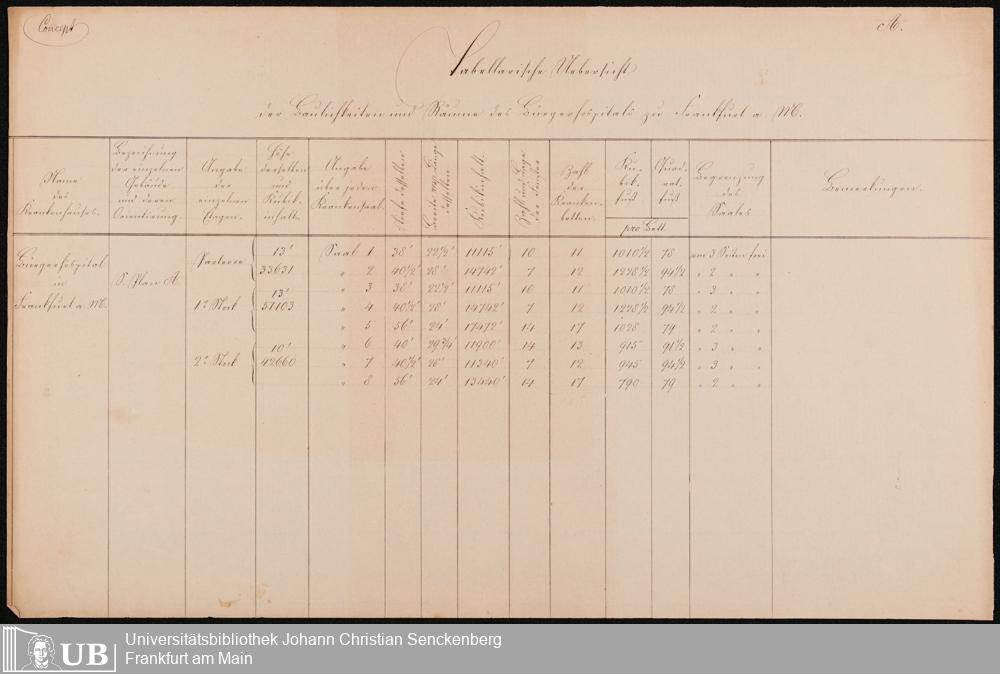 Concept
A.
Tabellarische Uebersicht
der Baulichkeiten und Räume des Bürgerhospitals zu Frankfurt a. M.
Name
des
Krankenhauses.
Bezeichnung
der einzelnen
Gebäude
und deren
Orientirung.
Angabe
der
einzelnen
Etagen.
Höhe
derselben
und
Kubik-
inhalt.
Angabe
über jeden
Krankensaal.
Tiefe desselben
Breite resp. Länge
desselben
Kubikinhalt.
Zahl und Lage
der Fenster
Zahl
der
Kranken-
betten.
Ku-
bik-
fuß
Quad-
rat-
fuß
pro Bett
Begrenzung
des
Saales
Bemerkungen.
Bürgerhospital
in
Frankfurt a. M.
S. Plan A
Parterre 13' 33631
Saal 1 38' 22½' 11115' 10 11 1010½ 78 an 3 Seiten frei
" 2 40½' 28' 14742' 7 12 1228½ 94½ " 2 " "
1r Stock 13' 51103
" 3 38' 22½' 11115' 10 11 1010½ 78 " 3 " "
" 4 40½' 28' 14742' 7 12 1228½ 94½ " 2 " "
" 5 56' 24' 17472' 14 17 1028 79 " 2 " "
2r Stock 10' 42660
" 6 40' 29¾' 11900' 14 13 915 91½ " 3 " "
" 7 40½' 28' 11340' 7 12 945 94½ " 3 " "
" 8 56' 24' 13440' 14 17 790 79 " 2 " "
UB
Universitätsbibliothek Johann Christian Senckenberg
Frankfurt am Main